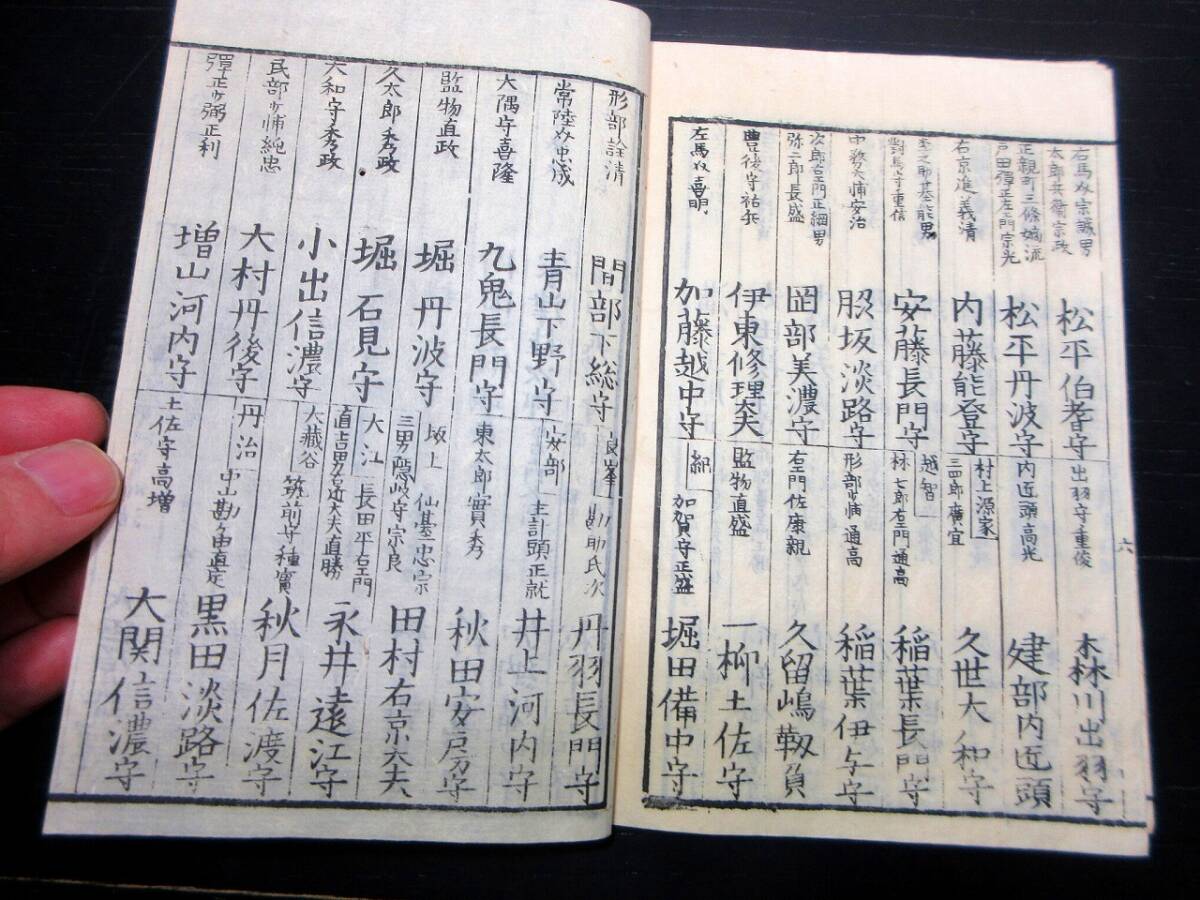 右馬允宗誠男
太郎兵衛宗政
松平伯耆守
正親町三條嫡流
戸田彈正左ヱ門宗光
松平丹波守
右京進義清
内藤能登守
杢之助基能男
對馬守重信
安藤長門守
中務大輔安治
脇坂淡路守
次郎右ヱ門正綱男
弥二郎長盛
岡部美濃守
豊後守祐兵
伊東修理大夫
左馬允喜明
加藤越中守
出羽守重俊
森川出羽守
内匠頭高光
建部内匠頭
村上源家
三四郎廣宜
久世大和守
越智
林七郎左ヱ門通高
稲葉長門守
形部少輔通高
稲葉伊与守
右ヱ門佐康親
久留嶋靱負
監物直盛
一柳土佐守
紀
加賀守正盛
堀田備中守
六
形部詮清
間部下総守
常陸介忠成
青山下野守
大隅守喜隆
九鬼長門守
監物直政
堀丹波守
久太郎秀政
堀石見守
大和守秀政
小出信濃守
民部少輔純忠
大村丹後守
彈正少弼正利
増山河内守
良峯
勘助氏次
丹羽長門守
安部
主計頭正就
井上河内守
東太郎實秀
秋田安房守
坂上
仙臺忠宗
三男隠岐守宗良
田村右京大夫
大江
長田平右ヱ門
直吉男右近大夫直勝
永井遠江守
大藏谷
筑前守種實
秋月佐渡守
丹治
中山勘ヶ由直定
黒田淡路守
土佐守高増
大関信濃守